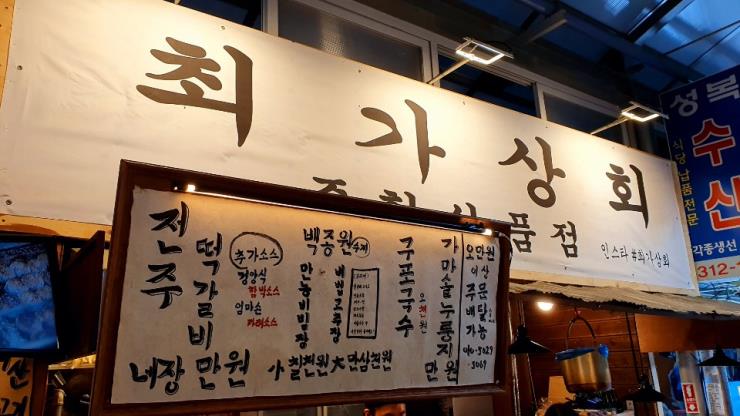 최가상회
품점
인스타 #최가상회
전주
떡갈비
네장 만원
추가소스
경양식
함박소스
엄마손
카레소스
백종원
만능비빔장
비법고추장
小 칠천원 大 만삼천원
구포국수
오천원
가마솥누룽지
만원
오만원
이상
주문
배달
가능
010-5029
-5069
성복
수산
식당 납품 전문
각종생선
312-1